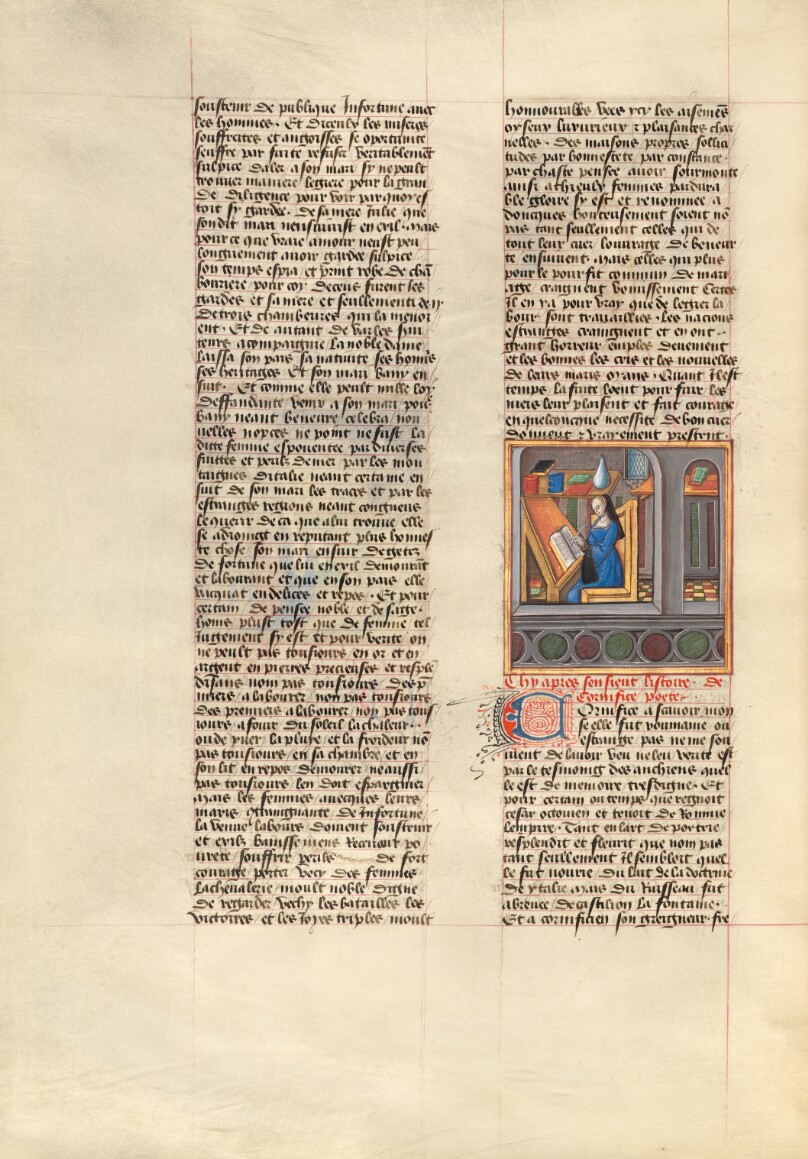 soustenir de publique Infortune avec
les hommes. Et diceulx les miseres
souffretes et angoisses se oportunite
seuffre par fuite refuser veritablement
sulpice daler a son mari sy ne peult
trouver maniere legiere pour la gran
de diligence pour voir par quoy es
toit sy gardee. de sa mere Iulie que
son dit mari nensuivist en exil. mais
pour ce que vraie amour neust peu
longuement avoir gardee sulpice
son temps espia et print robe de cha
bouriere pour coy deceus furent les
gardes et sa mere et seullement
de trois chamberieres qui la menor
ent. Et de autant de varles
teurs acompaignie la noble dame
laissa son pais sa nativite ses homes
ses heritages Et son mari bany en
suit. Et comme elle peult mille loy
deffandante venir a son mari pois
bany neant beneure celebra nou
uelles nopces ne point ne fust la
ditte femme espouentee par diverses
fuittes et perilz de mer par les mon
taignes ditalie neant certaine en
suit de son mari les traces et par les
estranges regions neant congneues
le querir de ca que a lui trouve elle
se adioingt en reputant plus honnes
te chose son mari ensuir degetez
de fortune que lui en exil demourant
et labourant et que en son pais elle
vacquat en delices et repos. Et pour
certain de pensee noble et de sage
homs plust tost que de femme tel
Iugement sy est et pour verite on
ne peult pas tousiours en or et en
argent en pierres precieuses et resple
disans nom pas tousiours des p
miers a labourer nom pas tousiours
des premiers a labourer non pas tous
iours a fouir du soleil la chaleur.
ou de yver la pluye et la froideur no
pas tousiours en sa chambre et en
son lit en repos demourer ne aussi
pas tousiours len doit espargnier
mais les femmes avecques leurs
maris de Infortune
la venue labours doivent soustenir
et exilz Recevoir po
urete souffrir perilz de fort
courage porter vecy des femmes
la chevalerie moult noble digne
de regarder vechy les batailles les
victoires et les Ioyes triples moult
honnourables vees ycy les aisemes
or seux luxurieux z plaisances char
nelles. des maisons propres sollici
tudes par honnestete par constance
par chaste pensee avoir sourmonte
aussi a theulx femmes pardura
ble gloire sy est et renommee a
doncques honteusement soient no
pas tant seullement celles qui de
tout leur cuer louvrage de beneur
te ensuivent. mais celles qui plus
pour le pourfit commun de mari
age craignent vomissement Certes
Il en y a pour vray que de legier la
bour sont travaillies. les nacions
estranges craingnent et en ont
grant horreur emples devenent
et les bonnes les cris et les nouvelles
de leurs maris oyans. Quant Il est
temps la fuite loent pour fuir les
meis leur plaisent et fait courage
en quelconcque necessite de bon cuer
donnent z vrayement prestent.
Chy apres sensuient listoire de
Cornifice poete.
Cornifice a scavoir mon
se elle fut roumaine ou
estrange pas ne me sou
vient de lavoir veu ne leu verite est
par le tesmoing des anchiens quel
le est de memoire tresdigne. Et
pour certain ou temps que regnoit
cesar octovien et tenoit de Romme
lempire. Tant en lart de poetrie
resplendit et fleurit que nom pas
tant seullement Il sembloit quel
le fut nourie du lait de la doctrine
de ytalie mais du ruisseau fut
abrevee de castilion la fontaine.
Et a cornificien son greigneur fre